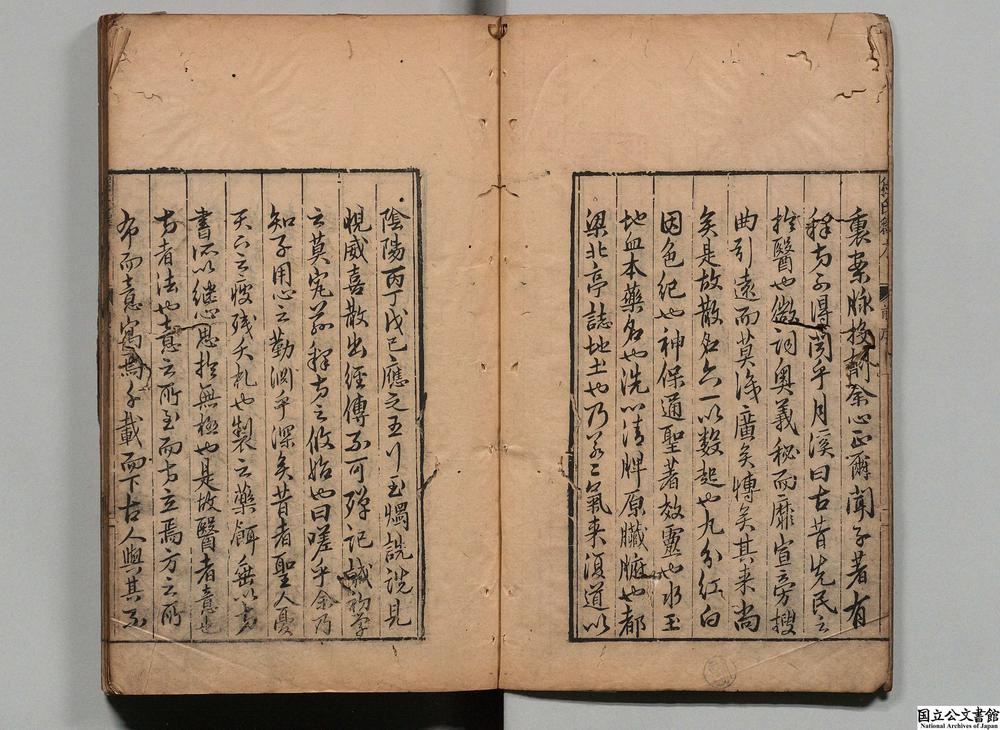 裏案脉投劑余心正爾聞子著有
釋方可得聞乎月溪曰古昔先民之
於醫也微詞奧義秘而靡宣旁搜
曲引遠而莫浅廣矣博矣其来尚
矣是故散名六一以数起也丸分红白
因色纪也神保通聖著效靈也水玉
地血本藥名也洗心清脾原臟腑也都
梁北亭誌地土也乃若二氣来復道以
陰陽丙丁戊己應之五行玉燭詵詵見
悅威喜散出經傳不可殫記誠初学
之莫究若釋方之攸始也曰嗟乎余乃
知子用心之勤渊乎深矣昔者聖人憂
天下之疲殘夭札也製之藥餌垂以方
書所以继心思於無極也是故醫者意也
方者法也意之所至而方立焉方之所
布而意寓焉千載而下古人與其不
国立公文書館
National Archives of Japan